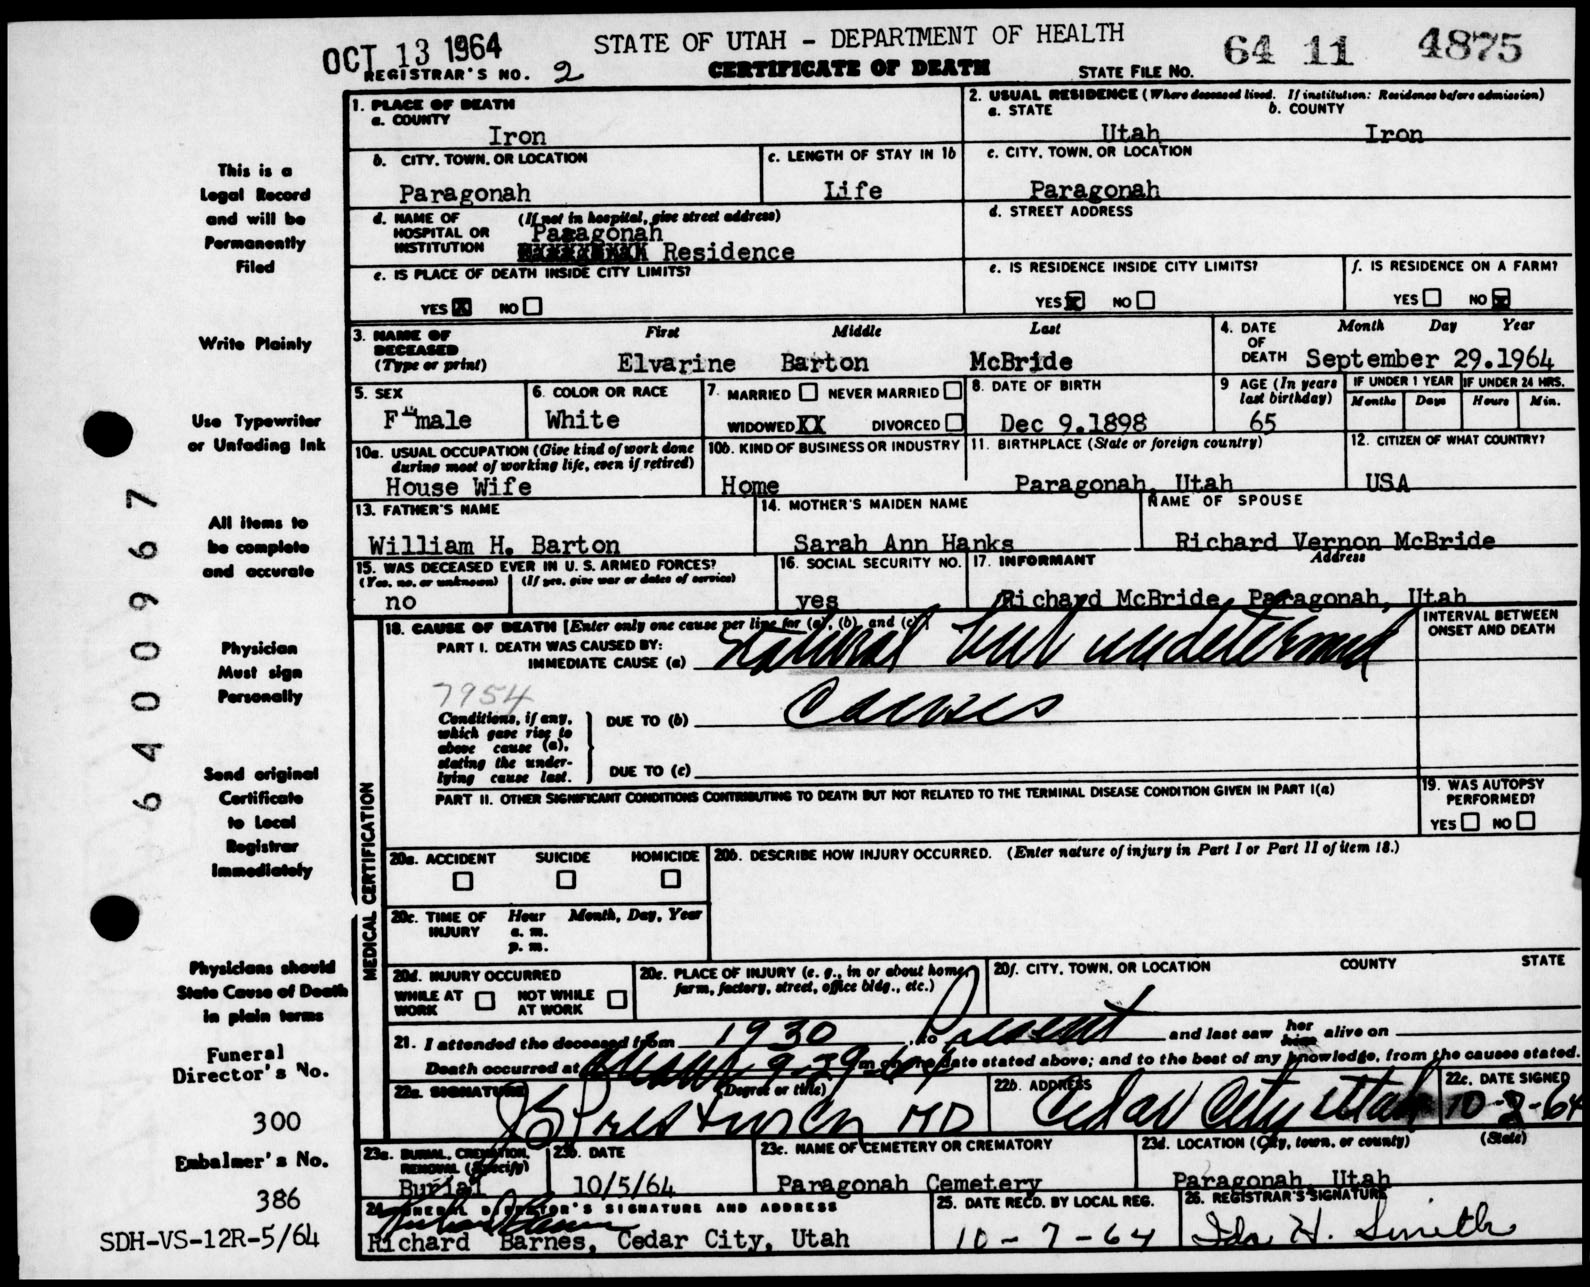 OCT 13 1964
STATE OF UTAH - DEPARTMENT OF HEALTH
64 11 4875
REGISTRAR'S NO. 2
CERTIFICATE OF DEATH
STATE FILE NO.
1. PLACE OF DEATH
a. COUNTY
Iron
2. USUAL RESIDENCE (Where deceased lived. If institution: Residence before admission)
a. STATE b. COUNTY
Utah Iron
b. CITY, TOWN, OR LOCATION
Paragonah
c. LENGTH OF STAY IN 1b
Life
c. CITY, TOWN, OR LOCATION
Paragonah
d. NAME OF HOSPITAL OR INSTITUTION (If not in hospital, give street address)
Paragonah
Residence
d. STREET ADDRESS
e. IS PLACE OF DEATH INSIDE CITY LIMITS?
YES X NO
e. IS RESIDENCE INSIDE CITY LIMITS?
YES X NO
f. IS RESIDENCE ON A FARM?
YES NO X
3. NAME OF DECEASED (Type or print)
First Middle Last
Elvarine Barton McBride
4. DATE OF DEATH
Month Day Year
September 29.1964
5. SEX
Female
6. COLOR OR RACE
White
7. MARRIED NEVER MARRIED
WIDOWED XX DIVORCED
8. DATE OF BIRTH
Dec 9.1898
9 AGE (In years last birthday)
65
IF UNDER 1 YEAR
Months Days
IF UNDER 24 HRS.
Hours Min.
10a. USUAL OCCUPATION (Give kind of work done during most of working life, even if retired)
House Wife
10b. KIND OF BUSINESS OR INDUSTRY
Home
11. BIRTHPLACE (State or foreign country)
Paragonah, Utah
12. CITIZEN OF WHAT COUNTRY?
USA
13. FATHER'S NAME
William H. Barton
14. MOTHER'S MAIDEN NAME
Sarah Ann Hanks
NAME OF SPOUSE
Richard Vernon McBride
15. WAS DECEASED EVER IN U. S. ARMED FORCES?
(Yes, no, or unknown) (If yes, give war or dates of service)
no
16. SOCIAL SECURITY NO.
yes
17. INFORMANT Address
Richard McBride, Paragonah, Utah
MEDICAL CERTIFICATION
18. CAUSE OF DEATH [Enter only one cause per line for (a), (b), and (c)]
INTERVAL BETWEEN ONSET AND DEATH
PART I. DEATH WAS CAUSED BY:
IMMEDIATE CAUSE (a) Natural but undetermined
7954
Conditions, if any, which gave rise to above cause (a), stating the underlying cause last.
DUE TO (b) Causes
DUE TO (c)
PART II. OTHER SIGNIFICANT CONDITIONS CONTRIBUTING TO DEATH BUT NOT RELATED TO THE TERMINAL DISEASE CONDITION GIVEN IN PART I(a)
19. WAS AUTOPSY PERFORMED?
YES NO
20a. ACCIDENT SUICIDE HOMICIDE
20b. DESCRIBE HOW INJURY OCCURRED. (Enter nature of injury in Part I or Part II of item 18.)
20c. TIME OF INJURY
Hour Month, Day, Year
a. m.
p. m.
20d. INJURY OCCURRED
WHILE AT WORK NOT WHILE AT WORK
20e. PLACE OF INJURY (e. g., in or about home, farm, factory, street, office bldg., etc.)
20f. CITY, TOWN, OR LOCATION COUNTY STATE
21. I attended the deceased from 1930 to Present and last saw her him alive on
Death occurred at 9-29-64 m on the date stated above; and to the best of my knowledge, from the causes stated.
22a. SIGNATURE (Degree or title)
MD
22b. ADDRESS
Cedar City Utah
22c. DATE SIGNED
10-2-64
23a. BURIAL, CREMATION, REMOVAL (Specify)
Burial
23b. DATE
10/5/64
23c. NAME OF CEMETERY OR CREMATORY
Paragonah Cemetery
23d. LOCATION (City, town, or county) (State)
Paragonah, Utah
24. FUNERAL DIRECTOR'S SIGNATURE AND ADDRESS
Richard Barnes, Cedar City, Utah
25. DATE RECD. BY LOCAL REG.
10-7-64
26. REGISTRAR'S SIGNATURE
Ida H. Smith
This is a
Legal Record
and will be
Permanently
Filed
Write Plainly
Use Typewriter
or Unfading Ink
All items to
be complete
and accurate
Physician
Must sign
Personally
Send original
Certificate
to Local
Registrar
Immediately
Physicians should
State Cause of Death
in plain terms
Funeral
Director's No.
300
Embalmer's No.
386
SDH-VS-12R-5/64
6400967